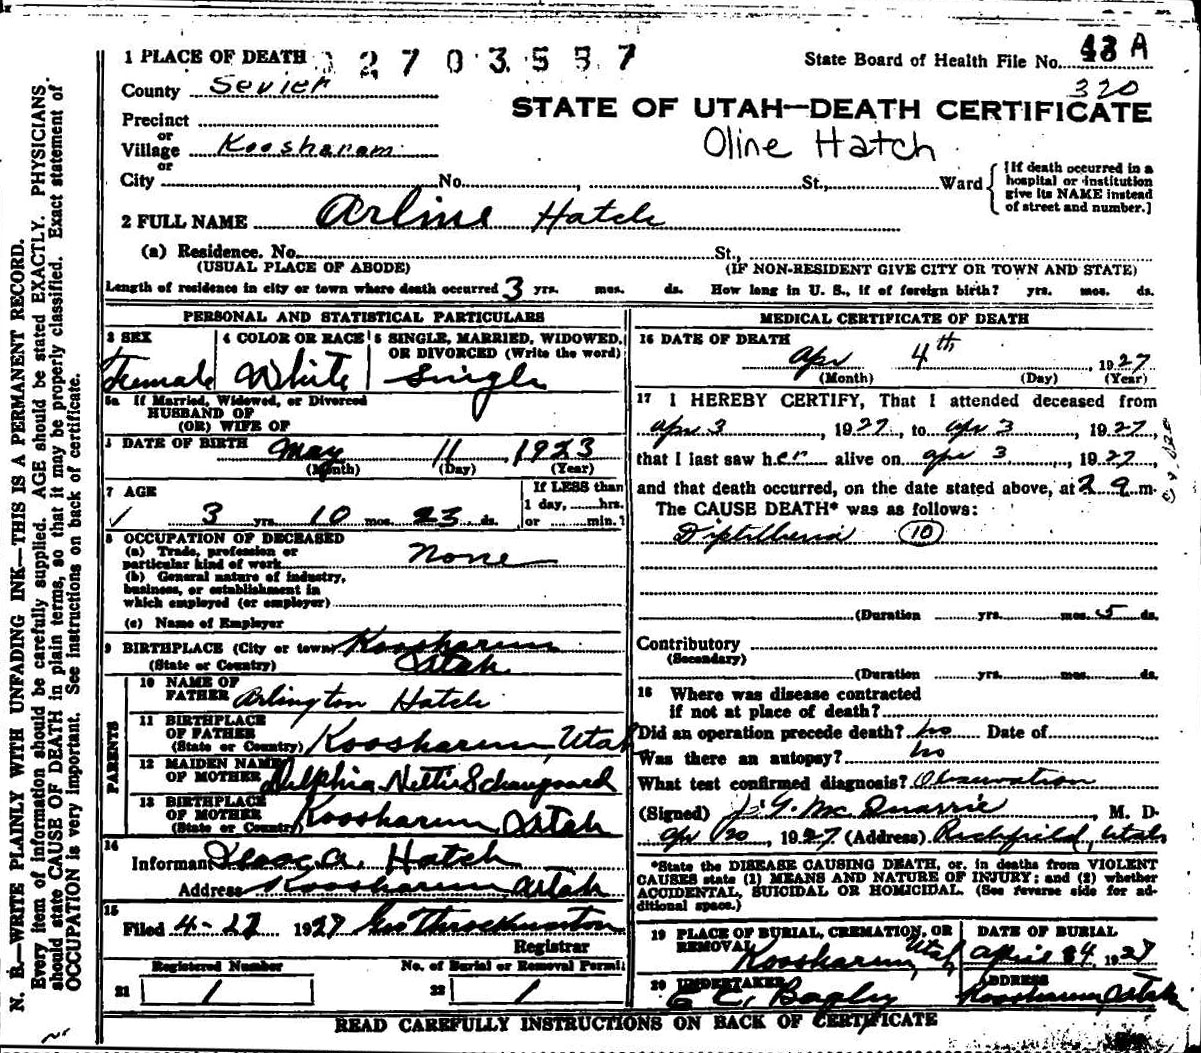 1 PLACE OF DEATH 2 7 0 3 5 5 7
State Board of Health File No. 43 A
320
County Sevier
STATE OF UTAH—DEATH CERTIFICATE
Precinct
or
Village Koosharem
Oline Hatch
or
City No. , St., Ward
[If death occurred in a
hospital or institution
give its NAME instead
of street and number.]
2 FULL NAME Arline Hatch
(a) Residence. No. St.,
(USUAL PLACE OF ABODE) (IF NON-RESIDENT GIVE CITY OR TOWN AND STATE)
Length of residence in city or town where death occurred 3 yrs. mos. ds. How long in U. S., if of foreign birth? yrs. mos. ds.
PERSONAL AND STATISTICAL PARTICULARS
3 SEX
Female
4 COLOR OR RACE
White
5 SINGLE, MARRIED, WIDOWED,
OR DIVORCED (Write the word)
Single
5a If Married, Widowed, or Divorced
HUSBAND OF
(OR) WIFE OF
DATE OF BIRTH May 11 1923
(Month) (Day) (Year)
7 AGE
If LESS than
1 day, hrs.
or min.?
3 yrs. 10 mos. 23 ds.
8 OCCUPATION OF DECEASED
(a) Trade, profession or
particular kind of work None
(b) General nature of industry,
business, or establishment in
which employed (or employer)
(c) Name of Employer
9 BIRTHPLACE (City or town) Koosharem
(State or Country) Utah
PARENTS
10 NAME OF
FATHER Arlington Hatch
11 BIRTHPLACE
OF FATHER
(State or Country) Koosharem, Utah
12 MAIDEN NAME
OF MOTHER Delphia Nettie
13 BIRTHPLACE
OF MOTHER
(State or Country) Koosharem, Utah
14
Informant Isaac A. Hatch
Address Koosharem Utah
15
Filed 4-27 1927 Geo Throckmorton
Registrar
Registered Number No. of Burial or Removal Permit
21 1 22 1
MEDICAL CERTIFICATE OF DEATH
16 DATE OF DEATH
Apr 4th , 1927
(Month) (Day) (Year)
17 I HEREBY CERTIFY, That I attended deceased from
Apr 3 , 1927, to Apr 3 , 1927,
that I last saw her alive on Apr 3 , 1927,
and that death occurred, on the date stated above, at 2 a m.
The CAUSE DEATH* was as follows:
Diptheria 10
(Duration yrs. mos. 5 ds.
Contributory
(Secondary)
(Duration yrs. mos. ds.
18 Where was disease contracted
if not at place of death?
Did an operation precede death? no Date of
Was there an autopsy? no
What test confirmed diagnosis? Observation
(Signed) J. G. McQuarrie , M. D.
Apr 20 , 1927 (Address) Richfield, Utah
*State the DISEASE CAUSING DEATH, or, in deaths from VIOLENT
CAUSES state (1) MEANS AND NATURE OF INJURY; and (2) whether
ACCIDENTAL, SUICIDAL OR HOMICIDAL. (See reverse side for ad-
ditional space.)
19 PLACE OF BURIAL, CREMATION, OR
REMOVAL Koosharem, Utah
DATE OF BURIAL
April 4, 1927
20 UNDERTAKER
E C. Bagley
ADDRESS
Koosharem Utah
READ CAREFULLY INSTRUCTIONS ON BACK OF CERTIFICATE
N. B.—WRITE PLAINLY WITH UNFADING INK—THIS IS A PERMANENT RECORD.
Every item of information should be carefully supplied. AGE should be stated EXACTLY. PHYSICIANS
should state CAUSE OF DEATH in plain terms, so that it may be properly classified. Exact statement of
OCCUPATION is very important. See instructions on back of certificate.